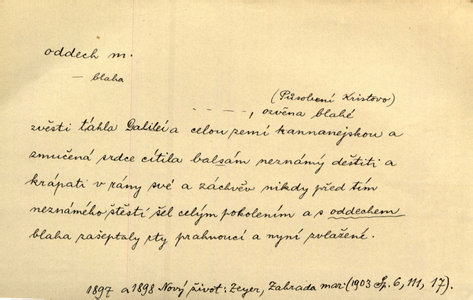 oddech m.
– blaha
(Působení Kristovo)
– – – – –, ozvěna blahé
zvěsti táhla Galileí a celou zemí kannanejskou a
zmučená srdce cítila balsám neznámý deštiti a
krápati v rány své a záchvěv nikdy před tím
neznámého štěstí šel celým pokolením a s oddechem
blaha zašeptaly rty prahnoucí a nyní zvlažené.
1897 a 1898 Nový život: Zeyer, Zahrada mar. (1903 Sp. 6, 111, 17).